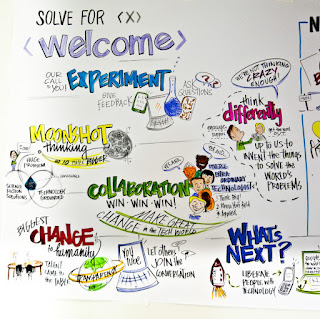 SOLVE FOR <X>
<welcome>
OUR CALL to YOU!
EXPERIMENT
GIVE FEEDBACK
ASK QUESTIONS
WE'RE NOT THINKING CRAZY ENOUGH!
think differently
UP to US to
INVENT the THINGS
to SOLVE the
WORLD'S
PROBLEMS
MOONSHOT
thinking
HUGE PROBLEM
SCIENCE FICTION
TECHNOLOGY
COLLABORATION!
WIN·WIN·WIN!
CHANGE in the TECH WORLD
BIGGEST
CHANGE
to humanity
TALENT
CAME to
the TABLE!
YOU
Let others
JOIN the
CONVERSATION
WHAT'S
NEXT?
LIBERATE
PEOPLE with
TECHNOLOGY
N